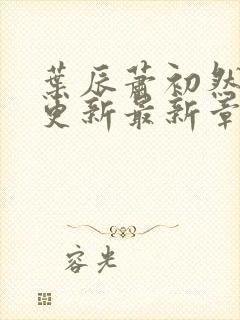 葉辰蕭初然
更新最新章
容光